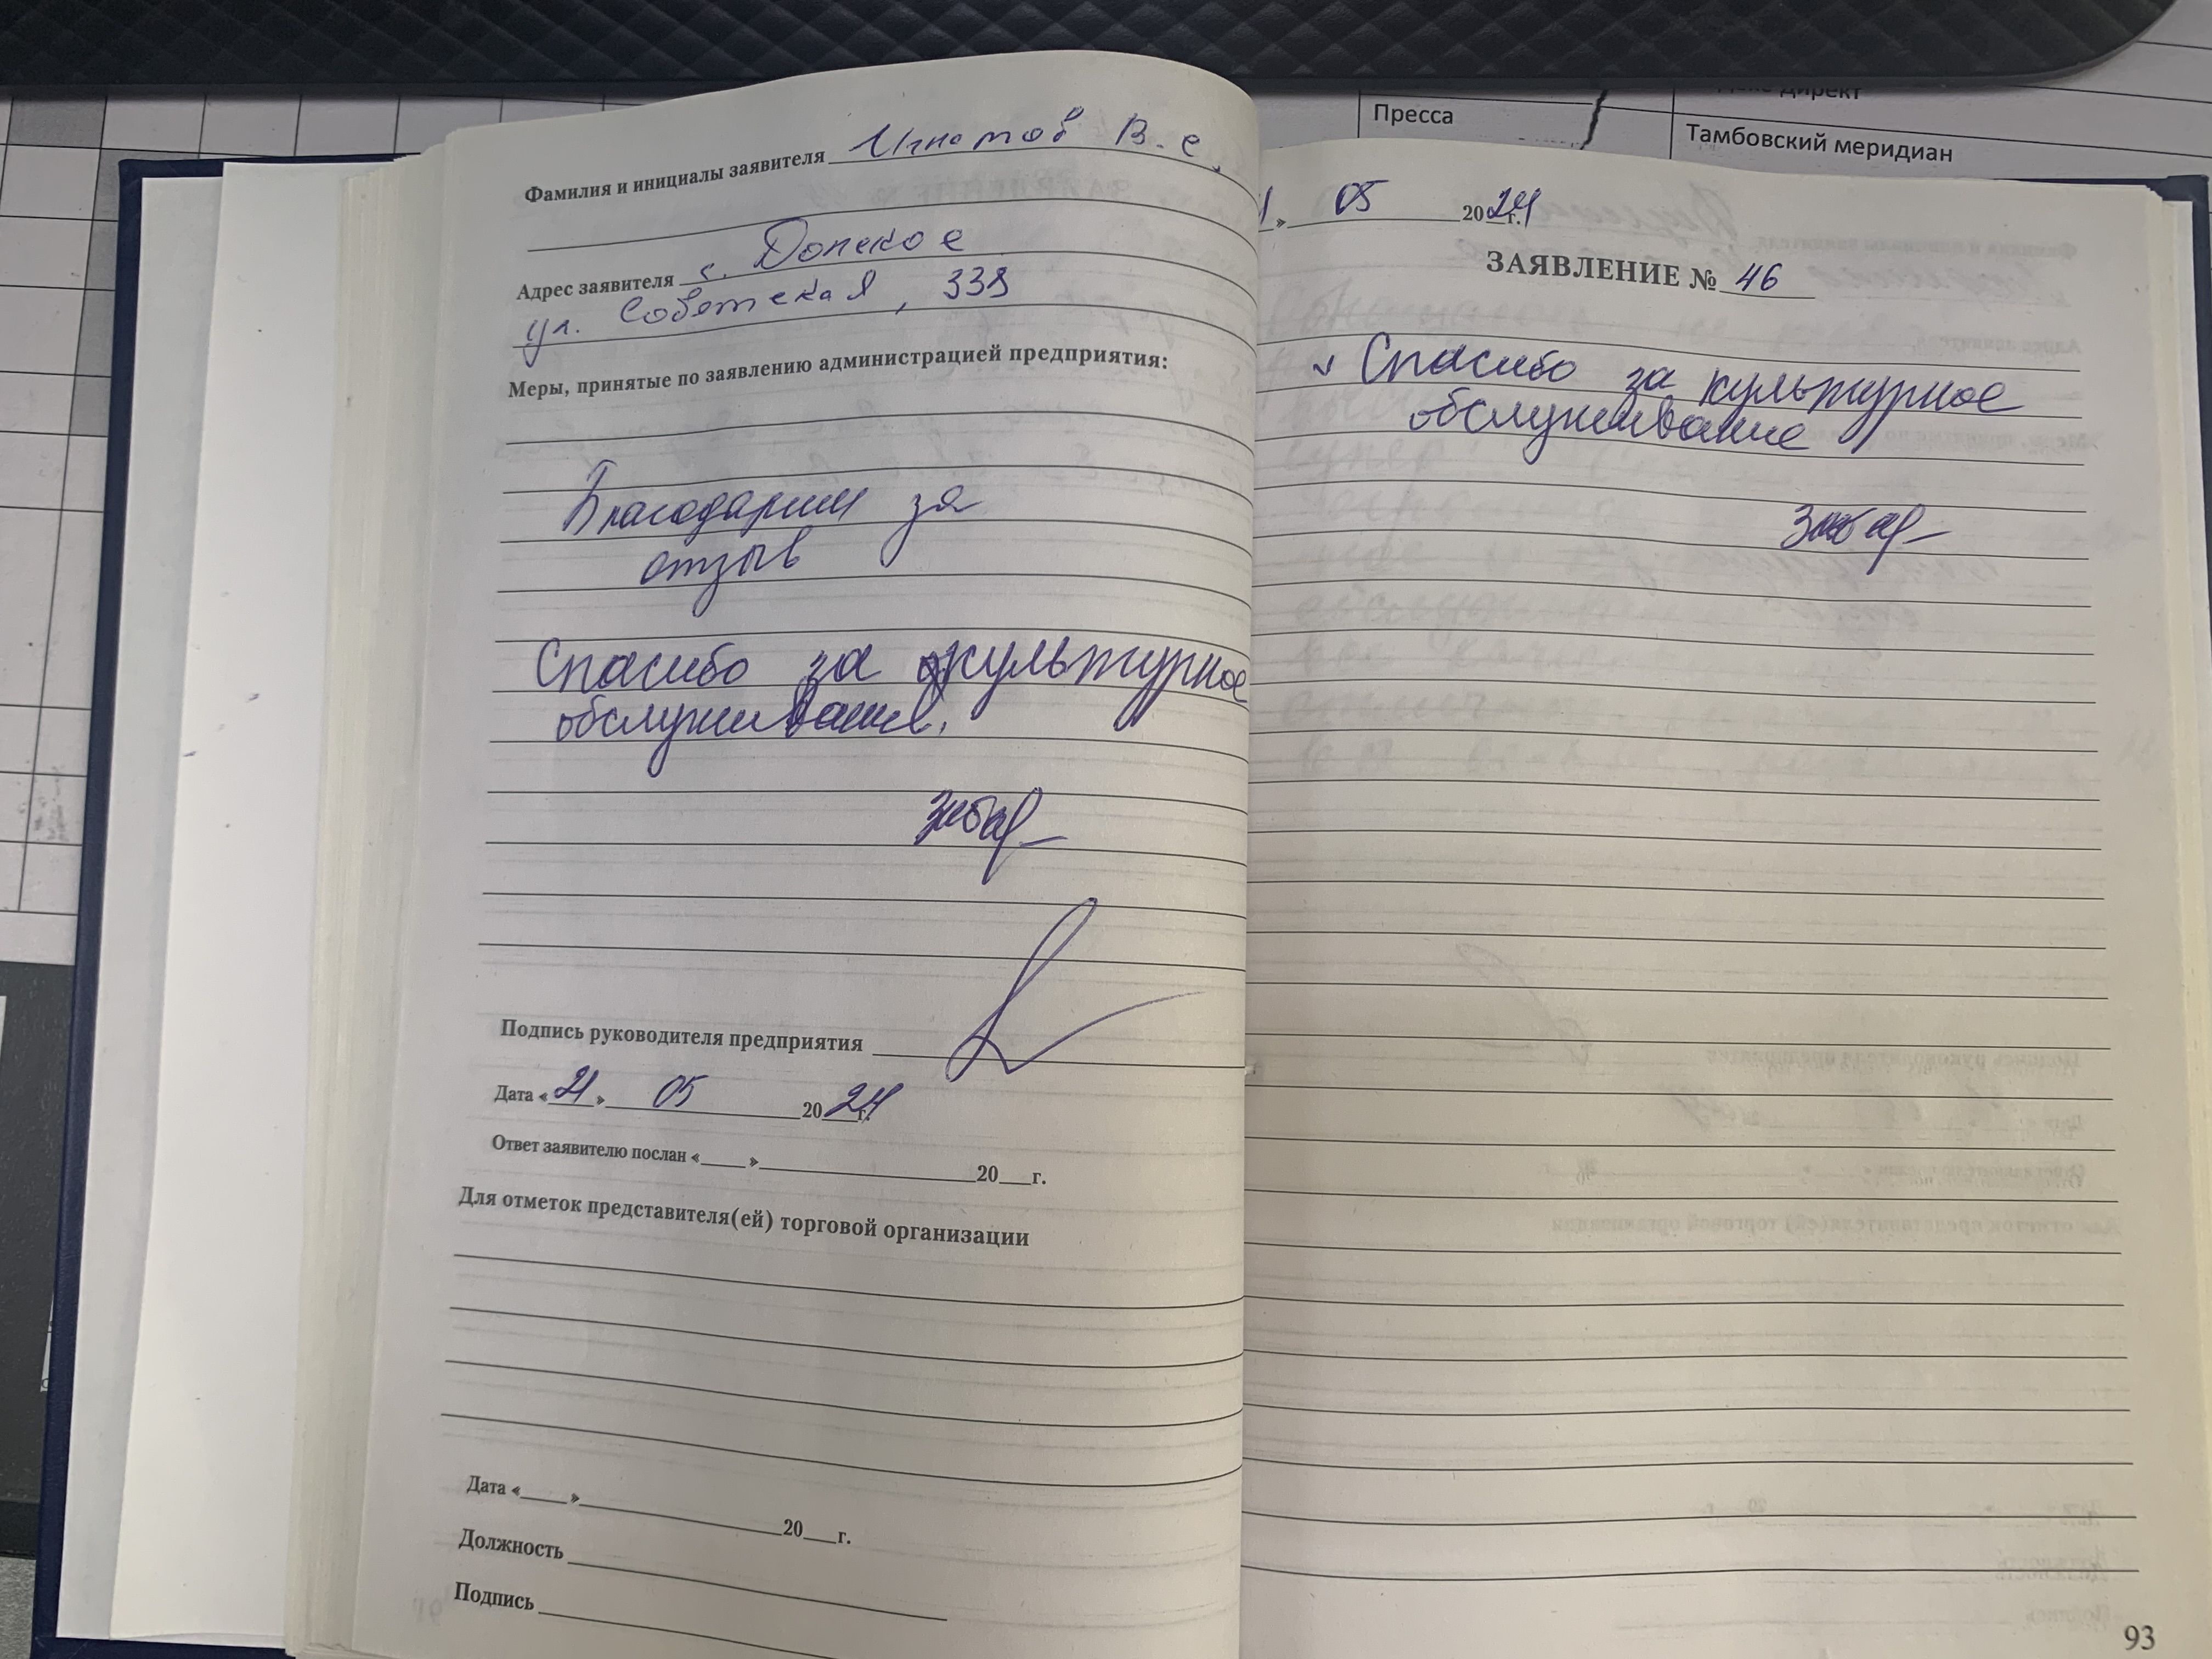 Пресса
Директ
Тамбовский меридиан
Фамилия и инициалы заявителя Игнатов В.С.
Адрес заявителя с. Донское
ул. Советская, 338
Меры, принятые по заявлению администрацией предприятия:
Благодарим за
отзыв
Спасибо за культурное
обслуживание.
Подпись руководителя предприятия
Дата «21» 05 2024г.
Ответ заявителю послан «___»___ 20___г.
Для отметок представителя(ей) торговой организации
Дата «___»___ 20___г.
Должность
Подпись
» 05 2024г.
ЗАЯВЛЕНИЕ № 46
Спасибо за культурное
обслуживание
93